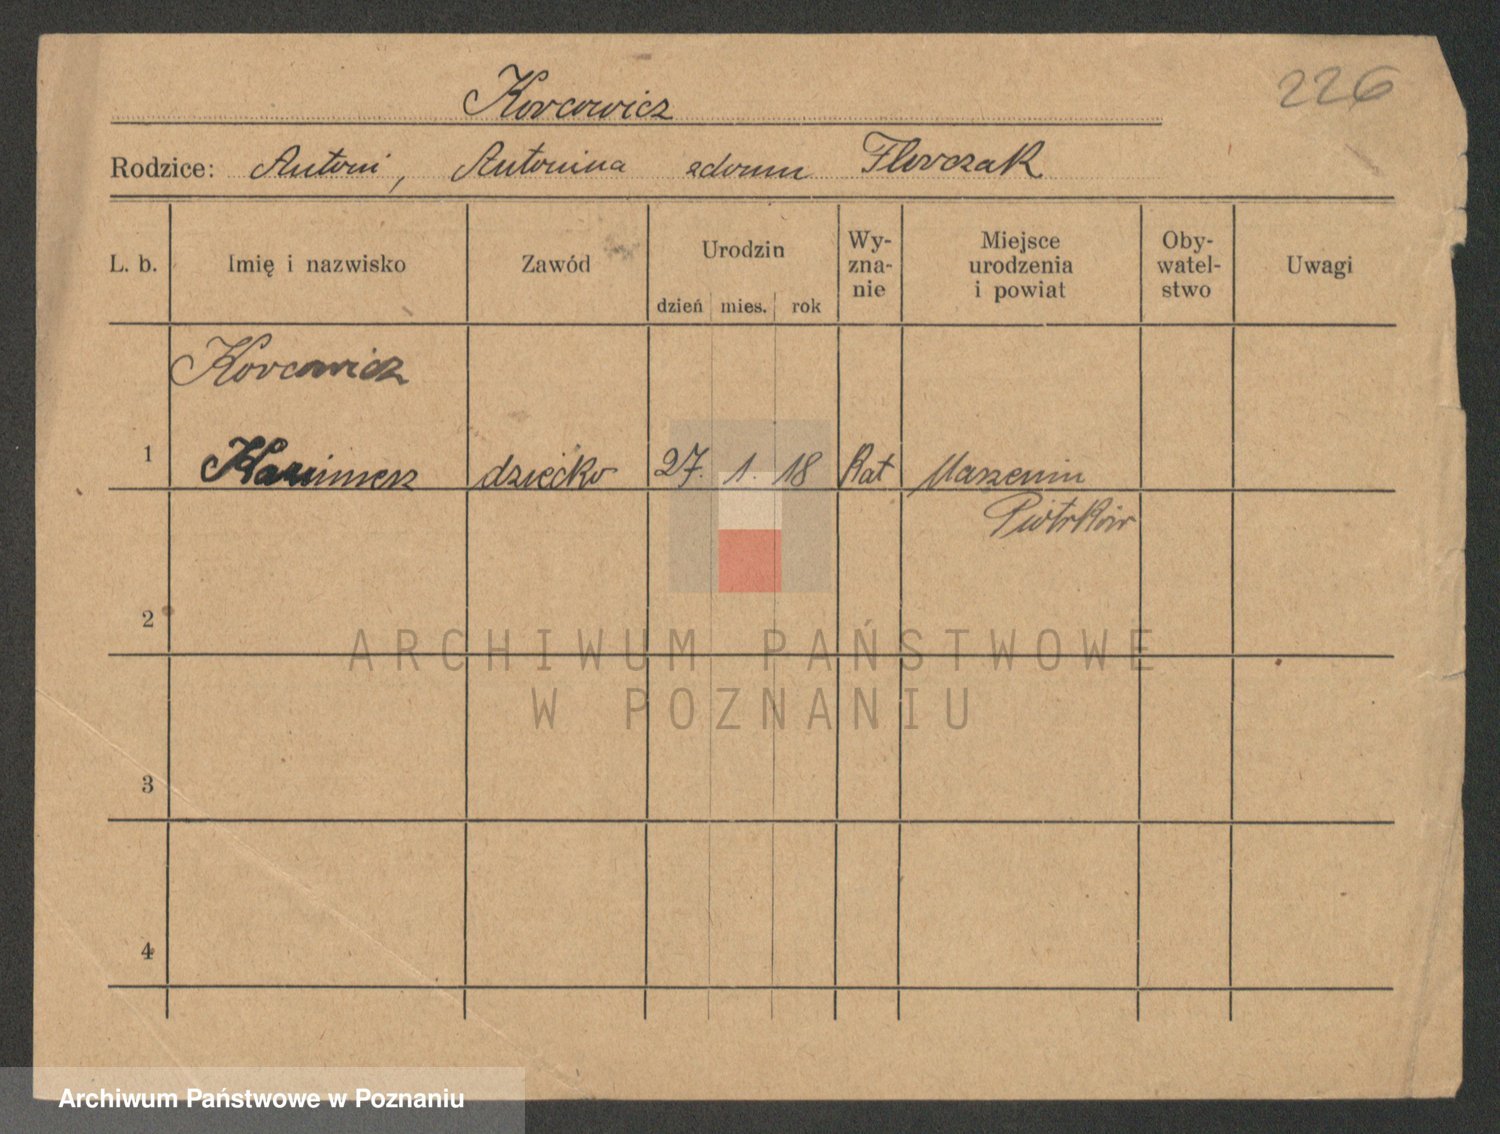 226
Korcowicz
Rodzice: Antoni, Antonina zdomu Florczak
L. b. Imię i nazwisko Zawód Urodzin dzień mies. rok Wy- zna- nie Miejsce urodzenia i powiat Oby- watel- stwo Uwagi
Korcowicz
1 Kazimierz dziecko 27. 1. 18 Kat Maszenin
Piotrków
2
ARCHIWUM PAŃSTWOWE
W POZNANIU
3
4
Archiwum Państwowe w Poznaniu